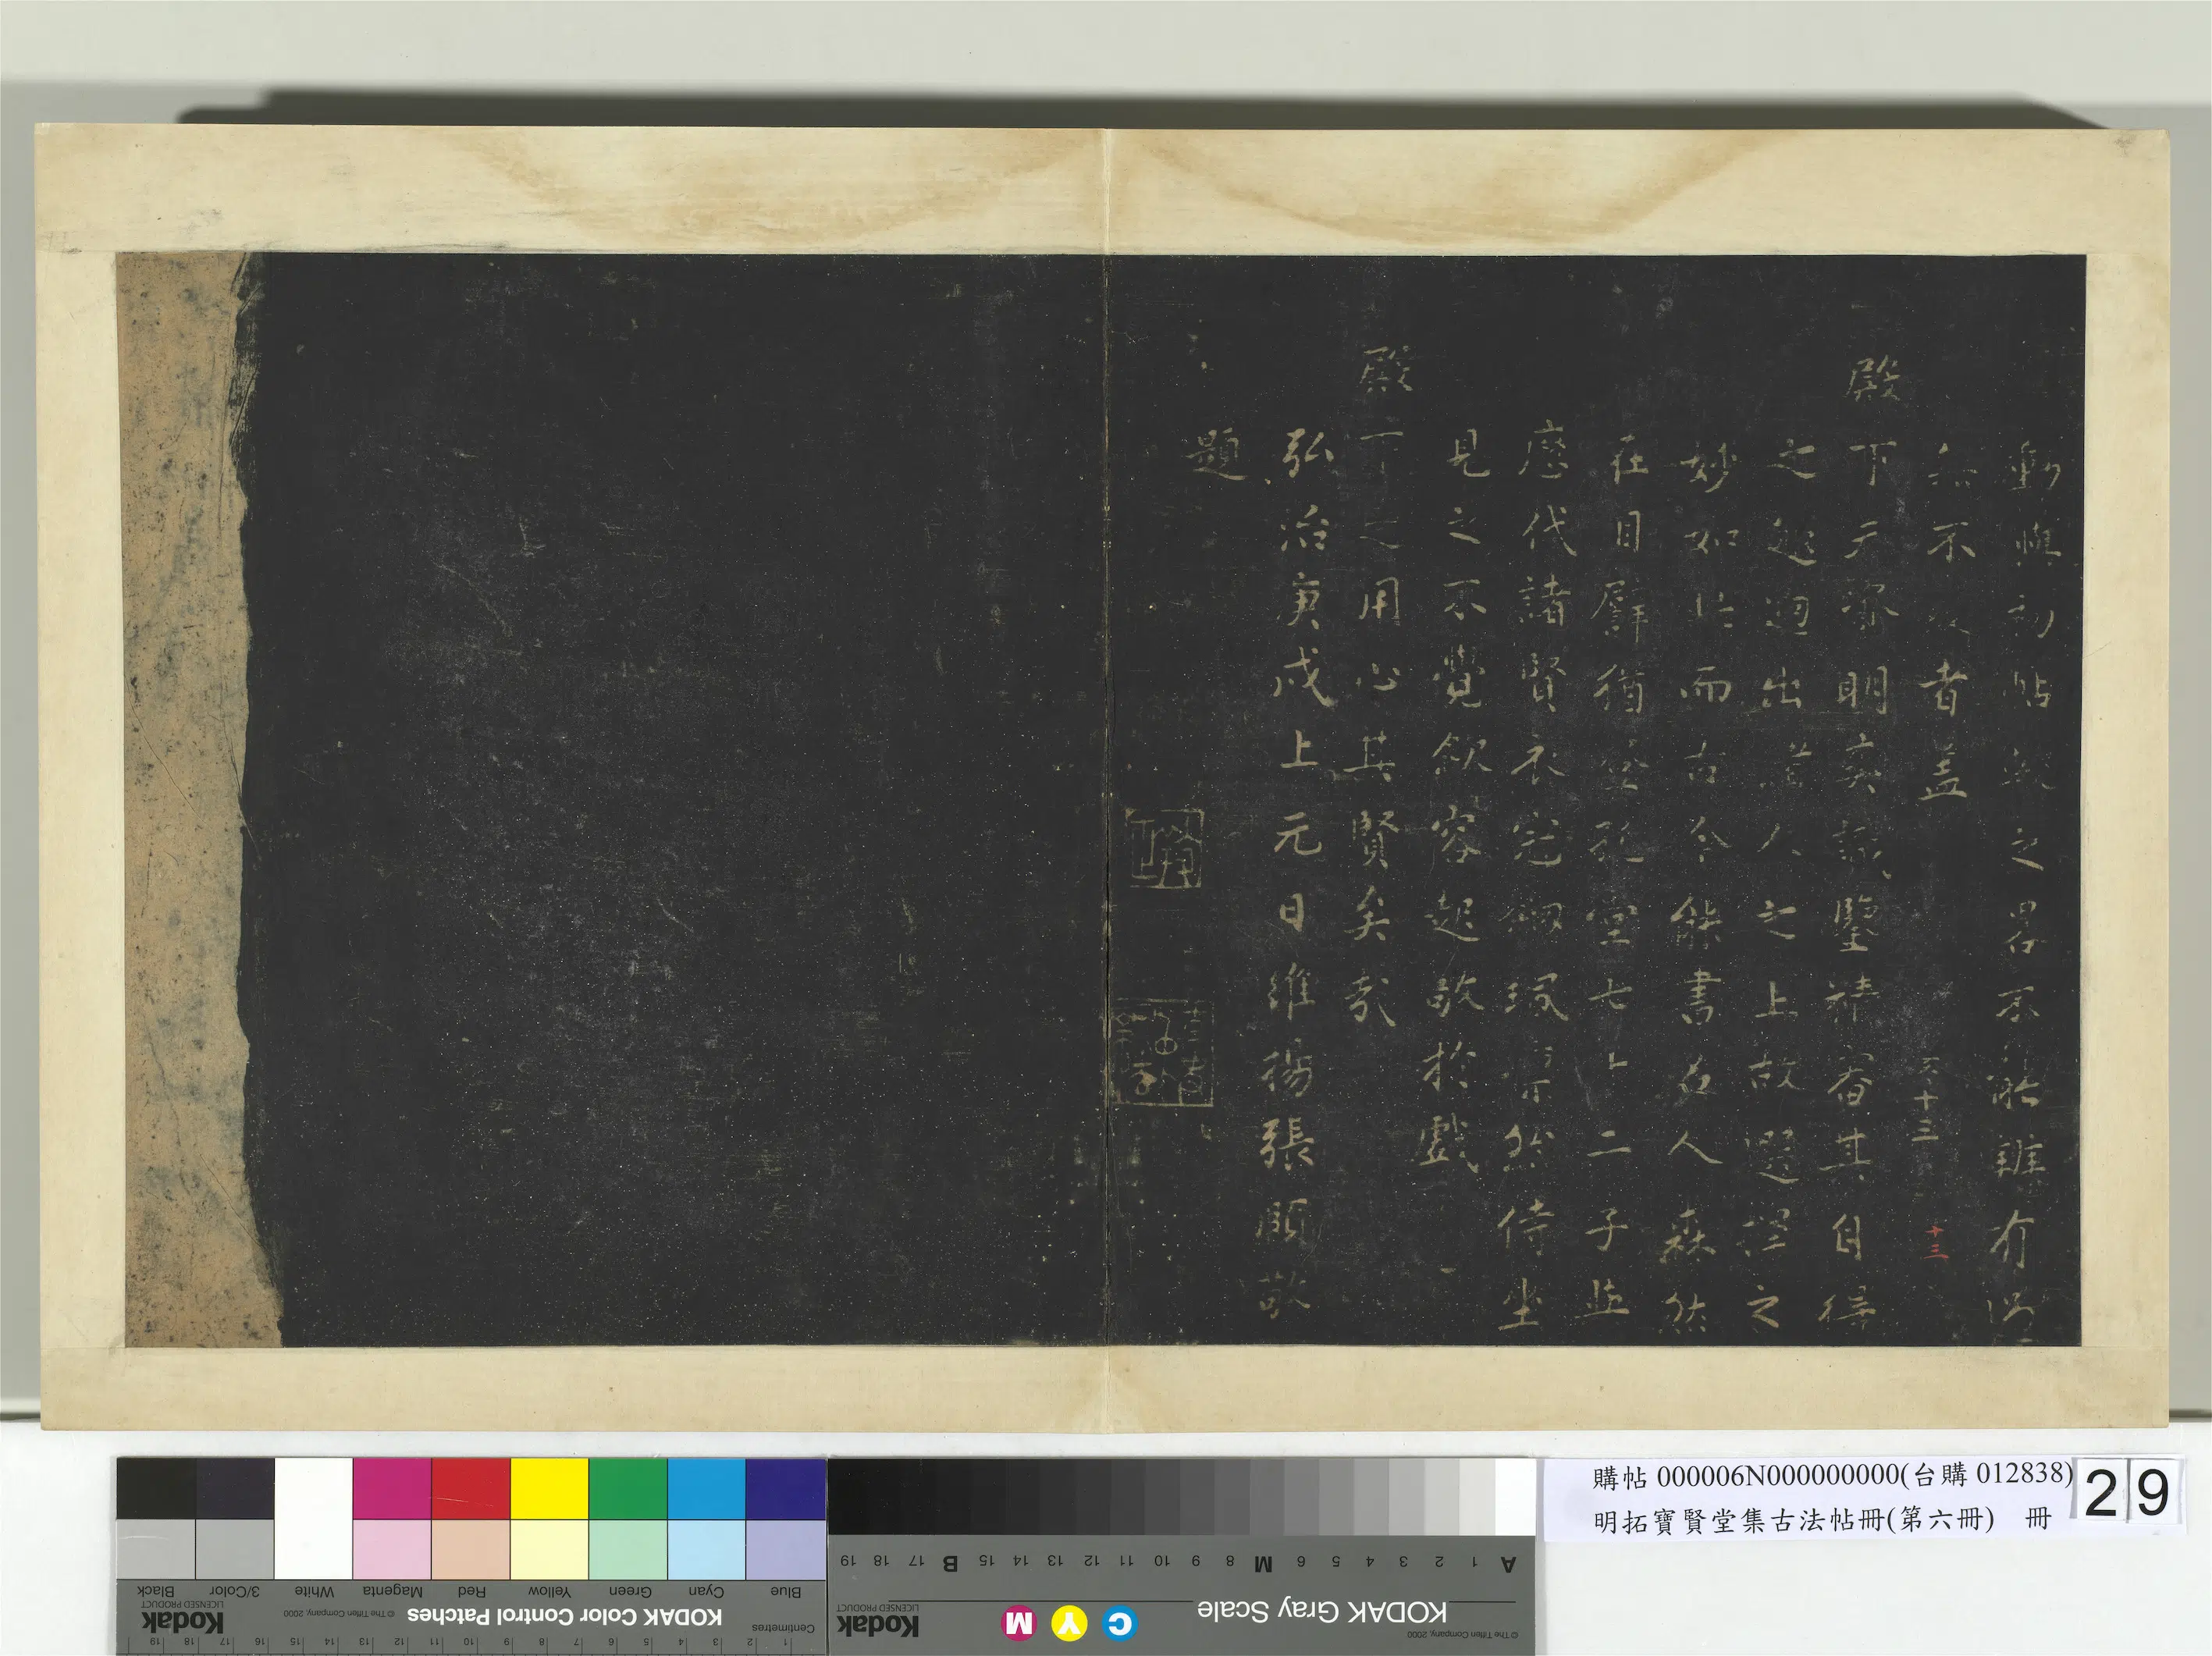 動 帖 之 不 雖有
無不 者蓋
六十三
十三
殿下天資明爽識鑒精審其自得
之趣迥出 人之上故選擇之
妙如此而古今能書名人森然
在目群猶登孔堂七十二子與
歷代諸賢衣冠珮環 然侍坐
見之不覺斂容起敬於戲
殿下之用心其賢矣哉
弘治庚戌上元日維揚張頤敬
題
購帖 000006N000000000(台購 012838)
明拓寶賢堂集古法帖冊(第六冊) 冊
29
Blue Cyan Green Yellow Red Magenta White 3/Color Black
KODAK Color Control Patches
© The Tiffen Company, 2000
Kodak
LICENSED PRODUCT
Centimetres
1 2 3 4 5 6 7 8 9 10 11 12 13 14 15 16 17 18 19
A 1 2 3 4 5 6 M 8 9 10 11 12 13 14 15 B 17 18 19
KODAK Gray Scale
C Y M
Kodak
LICENSED PRODUCT
© The Tiffen Company, 2000